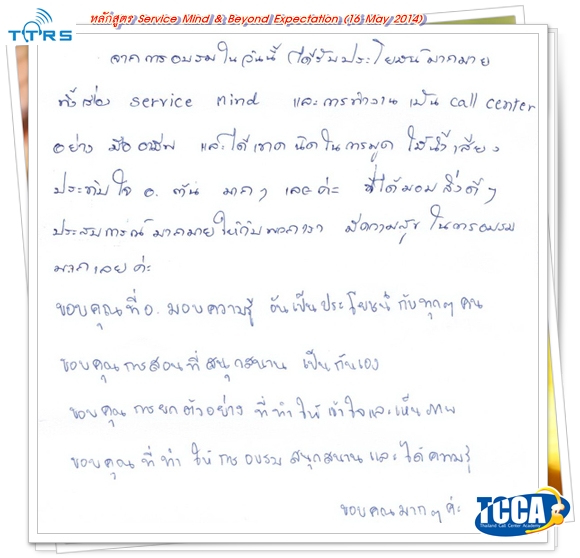 TTRS
หลักสูตร Service Mind & Beyond Expectation (16 May 2014)
จากการอบรมในวันนี้ ได้รับประโยชน์มากมาย
ทั้งเรื่อง service mind และการทำงานเป็น call center
อย่าง มืออาชีพ และได้เทคนิคในการพูด ใช้น้ำเสียง
ประทับใจ อ. มากๆ เลยค่ะ ที่ได้มอบสิ่งดีๆ
ประสบการณ์มากมายให้กับพวกเรา มีความสุขในการอบรม
มากเลยค่ะ
ขอบคุณที่อ. มอบความรู้ อันเป็นประโยชน์กับทุกๆ คน
ขอบคุณการสอนที่สนุกสนาน เป็นกันเอง
ขอบคุณ การยกตัวอย่าง ที่ทำให้เข้าใจและเห็นภาพ
ขอบคุณที่ทำให้การอบรม สนุกสนานและได้ความรู้
ขอบคุณมากๆ ค่ะ
TCCA
Thailand Call Center Academy